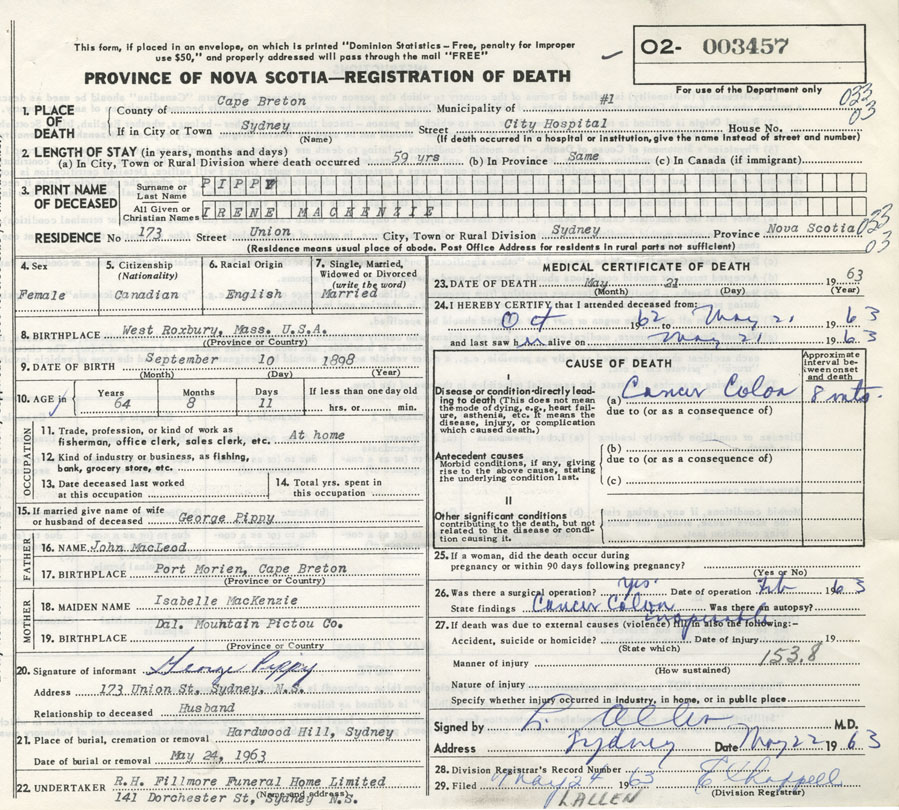 This form, if placed in an envelope, on which is printed "Dominion Statistics – Free, penalty for improper
use $50," and properly addressed will pass through the mail "FREE"
O2- 003457
For use of the Department only
PROVINCE OF NOVA SCOTIA—REGISTRATION OF DEATH
023
03
1. PLACE OF DEATH
County of Cape Breton Municipality of #1
If in City or Town Sydney Street City Hospital House No.
(Name) (If death occurred in a hospital or institution, give the name instead of street and number)
2. LENGTH OF STAY (in years, months and days)
(a) In City, Town or Rural Division where death occurred 59 yrs (b) In Province Same (c) In Canada (if immigrant)
3. PRINT NAME OF DECEASED
Surname or Last Name PIPPY
All Given or Christian Names IRENE MACKENZIE
RESIDENCE No 173 Street Union City, Town or Rural Division Sydney Province Nova Scotia
(Residence means usual place of abode. Post Office Address for residents in rural parts not sufficient)
023
03
4. Sex
Female
5. Citizenship
(Nationality)
Canadian
6. Racial Origin
English
7. Single, Married, Widowed or Divorced
(write the word)
Married
8. BIRTHPLACE West Roxbury, Mass. U.S.A.
(Province or Country)
9. DATE OF BIRTH September 10 1898
(Month) (Day) (Year)
10. AGE in
Years 64
Months 8
Days 11
If less than one day old
hrs. or min.
OCCUPATION
11. Trade, profession, or kind of work as
fisherman, office clerk, sales clerk, etc. At home
12. Kind of industry or business, as fishing,
bank, grocery store, etc.
13. Date deceased last worked
at this occupation
14. Total yrs. spent in
this occupation
15. If married give name of wife
or husband of deceased George Pippy
FATHER
16. NAME John MacLeod
17. BIRTHPLACE Port Morien, Cape Breton
(Province or Country)
MOTHER
18. MAIDEN NAME Isabelle MacKenzie
19. BIRTHPLACE Dal. Mountain Pictou Co.
(Province or Country)
20. Signature of informant George Pippy
Address 173 Union St, Sydney, N.S.
Relationship to deceased Husband
21. Place of burial, cremation or removal Hardwood Hill, Sydney
Date of burial or removal May 24, 1963
22. UNDERTAKER R.H. Fillmore Funeral Home Limited
(Name and address)
141 Dorchester St, Sydney N.S.
MEDICAL CERTIFICATE OF DEATH
23. DATE OF DEATH May 21 1963
(Month) (Day) (Year)
24. I HEREBY CERTIFY, that I attended deceased from:
Oct 1962 to May 21 1963
and last saw h alive on May 21 1963
CAUSE OF DEATH
Approximate interval between onset and death
I
Disease or condition directly leading to death (This does not mean the mode of dying, e.g., heart failure, asthenia, etc. It means the disease, injury, or complication which caused death.)
(a) Cancer Colon 8 mts.
due to (or as a consequence of)
Antecedent causes
Morbid conditions, if any, giving rise to the above cause, stating the underlying condition last.
(b)
due to (or as a consequence of)
(c)
II
Other significant conditions
contributing to the death, but not related to the disease or condition causing it.
25. If a woman, did the death occur during
pregnancy or within 90 days following pregnancy?
(Yes or No)
26. Was there a surgical operation? Yes. Date of operation Feb 1963
State findings Cancer Colon Was there an autopsy?
inoperable
27. If death was due to external causes (violence) fill in also the following:–
Accident, suicide or homicide? Date of injury 19
(State which)
Manner of injury 153.8
(How sustained)
Nature of injury
Specify whether injury occurred in industry, in home, or in public place
Signed by Allen M.D.
Address Sydney Date May 22 1963
28. Division Registrar's Record Number
29. Filed May 24 1963 E Chappell
(Division Registrar)
L ALLEN